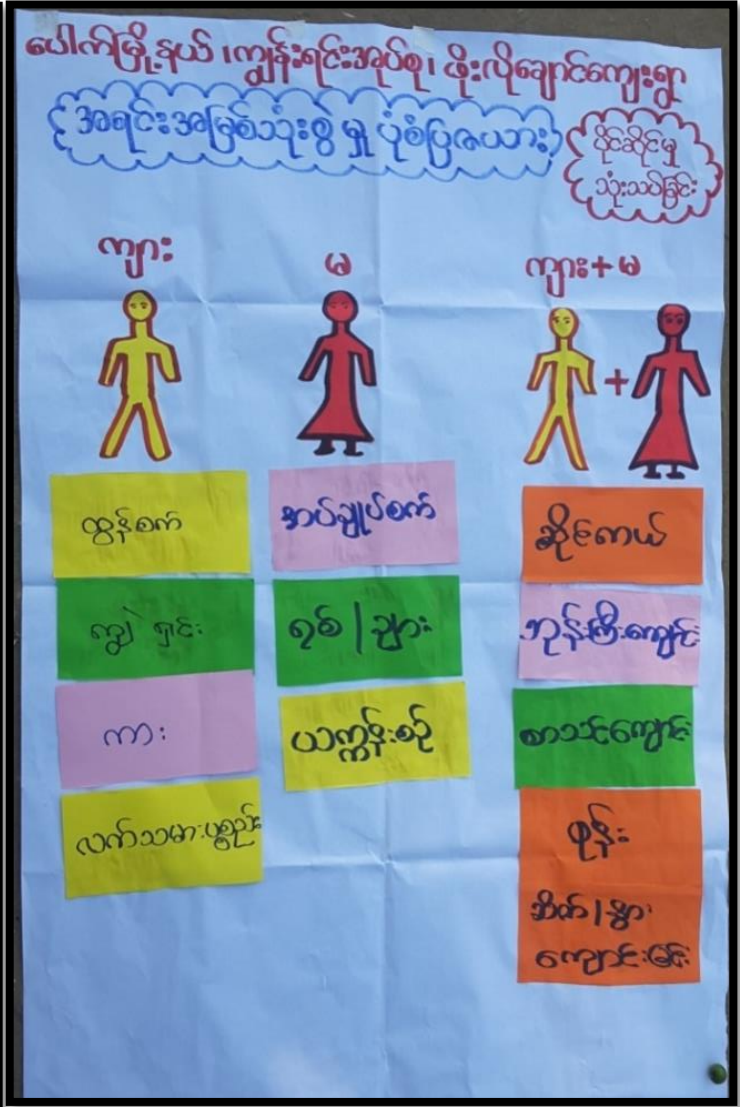 ပေါက်မြို့နယ်၊ ကျွန်းရင်းအုပ်စု၊ ဖိုးလိုချောင်ကျေးရွာ
အရင်းအမြစ်သုံးစွဲမှု ပုံစံပြဇယား
ပိုင်ဆိုင်မှု
သုံးသပ်ခြင်း
ကျား
မ
ကျား+မ
+
ထွန်စက်
ကျွဲ ရှင်း
ကား
လက်သမားပစ္စည်း
အပ်ချုပ်စက်
ရစ်/ချား
ယက္ကန်းစဉ်
ဆိုင်ကယ်
ဘုန်းကြီးကျောင်း
စာသင်ကျောင်း
ဖုန်း
ဆိတ်/နွား
ကျောင်း